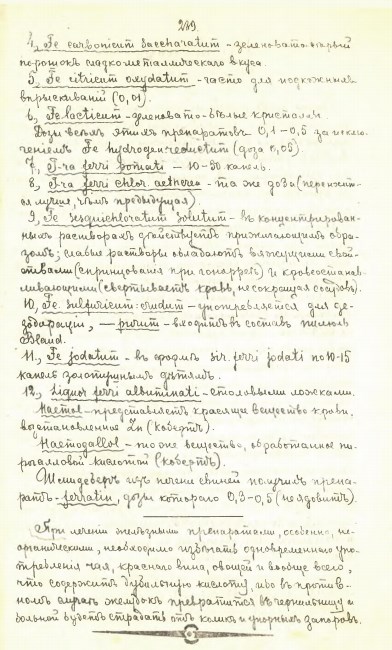 249.
4, Fe carbonicum Saccharatum – зеленовато-сѣрый
порошокъ сладкометаллическаго вкуса.
5, Fe citricum oxydatum – часто для подкожныхъ
впрыскиваній (0,01).
6, Fe lacticum – зеленовато-бѣлые кристалы.
Дозы всѣхъ этихъ препаратовъ 0,1–0,5 за исклю-
ченіемъ Fe hydrogen reductum (доза 0,05).
7, T-ra ferri pomati – 10–30 капель.
8, T-ra ferri chlor. aetherea – та же доза (перенosит-
ся лучше, чѣмъ предыдущая).
9, Fe sesquichloratum solutum – въ концентрирован-
ныхъ растворахъ дѣйствуетъ прижигающимъ обра-
зомъ; слабые растворы обладаютъ вяжущими свой-
ствами (спринцованія при гонорреѣ) и кровоостана-
вливающими (свертываетъ кровь, не сокращая сосудовъ).
10, Fe sulfuricum: crudum – употребляется для де-
зодораціи, – purum – входитъ въ составъ пилюль
Bland.
11, Fe jodatum – въ формѣ sir. ferri jodati по 10–15
капель золотушнымъ дѣтямъ.
12, Liquor ferri albuminati – столовыми ложками.
Haemol – представляетъ красящее вещество крови,
возстановленное Zn (Кобертъ).
Haemogallol – то же вещество, обработанное пи-
рогалловой кислотой (Кобертъ).
Шмидебергъ изъ печени свиней получилъ препа-
ратъ – ferratin, дозы котораго 0,3–0,5 (не ядовитъ).
При леченіи желѣзными препаратами, особенно, не-
органическими, необходимо избѣгать одновременнаго упо-
требленія чая, краснаго вина, овощей и вообще всего,
что содержитъ дубильную кислоту, ибо въ против-
номъ случаѣ желудокъ превратится въ чернильницу и
больной будетъ страдать отъ коликъ и упорныхъ запоровъ.